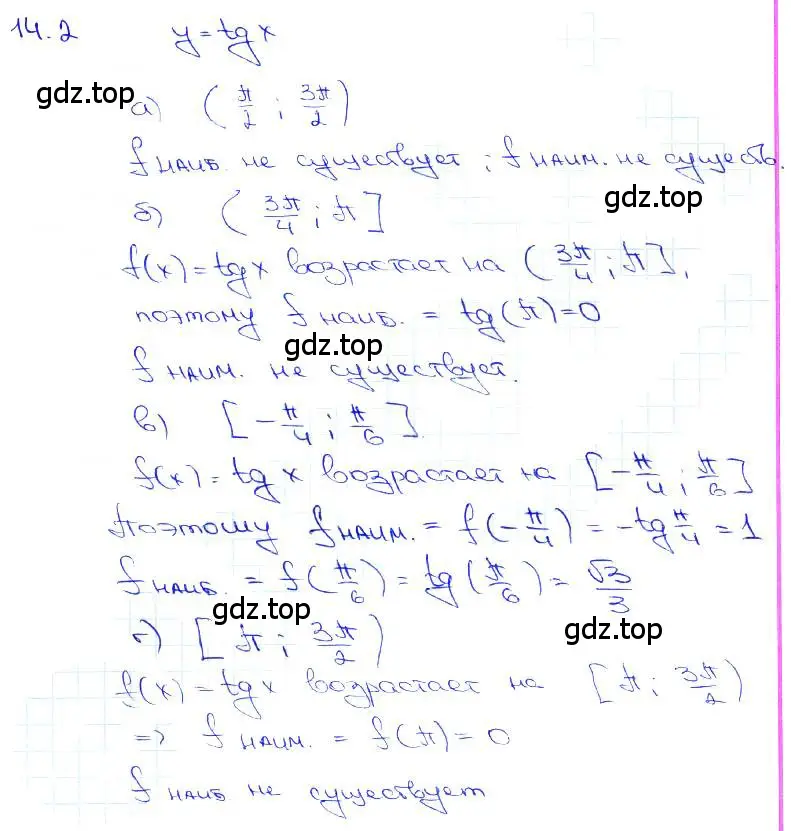 14.2 y = tg x
gdz.top
а) (π/2 ; 3π/2)
f наиб. не существует ; f наим. не существ.
gdz.top
б) (3π/4 ; π]
f(x) = tg x возрастает на (3π/4 ; π],
поэтому f наиб. = tg(π) = 0
gdz.top
f наим. не существует.
в) [-π/4 ; π/6].
f(x) = tg x возрастает на [-π/4 ; π/6]
Поэтому f наим. = f(-π/4) = -tg π/4 = 1
f наиб. = f(π/6) = tg(π/6) = √3/3
gdz.top
г) [π ; 3π/2)
gdz.top
f(x) = tg x возрастает на [π ; 3π/2)
=> f наим. = f(π) = 0
f наиб не существует